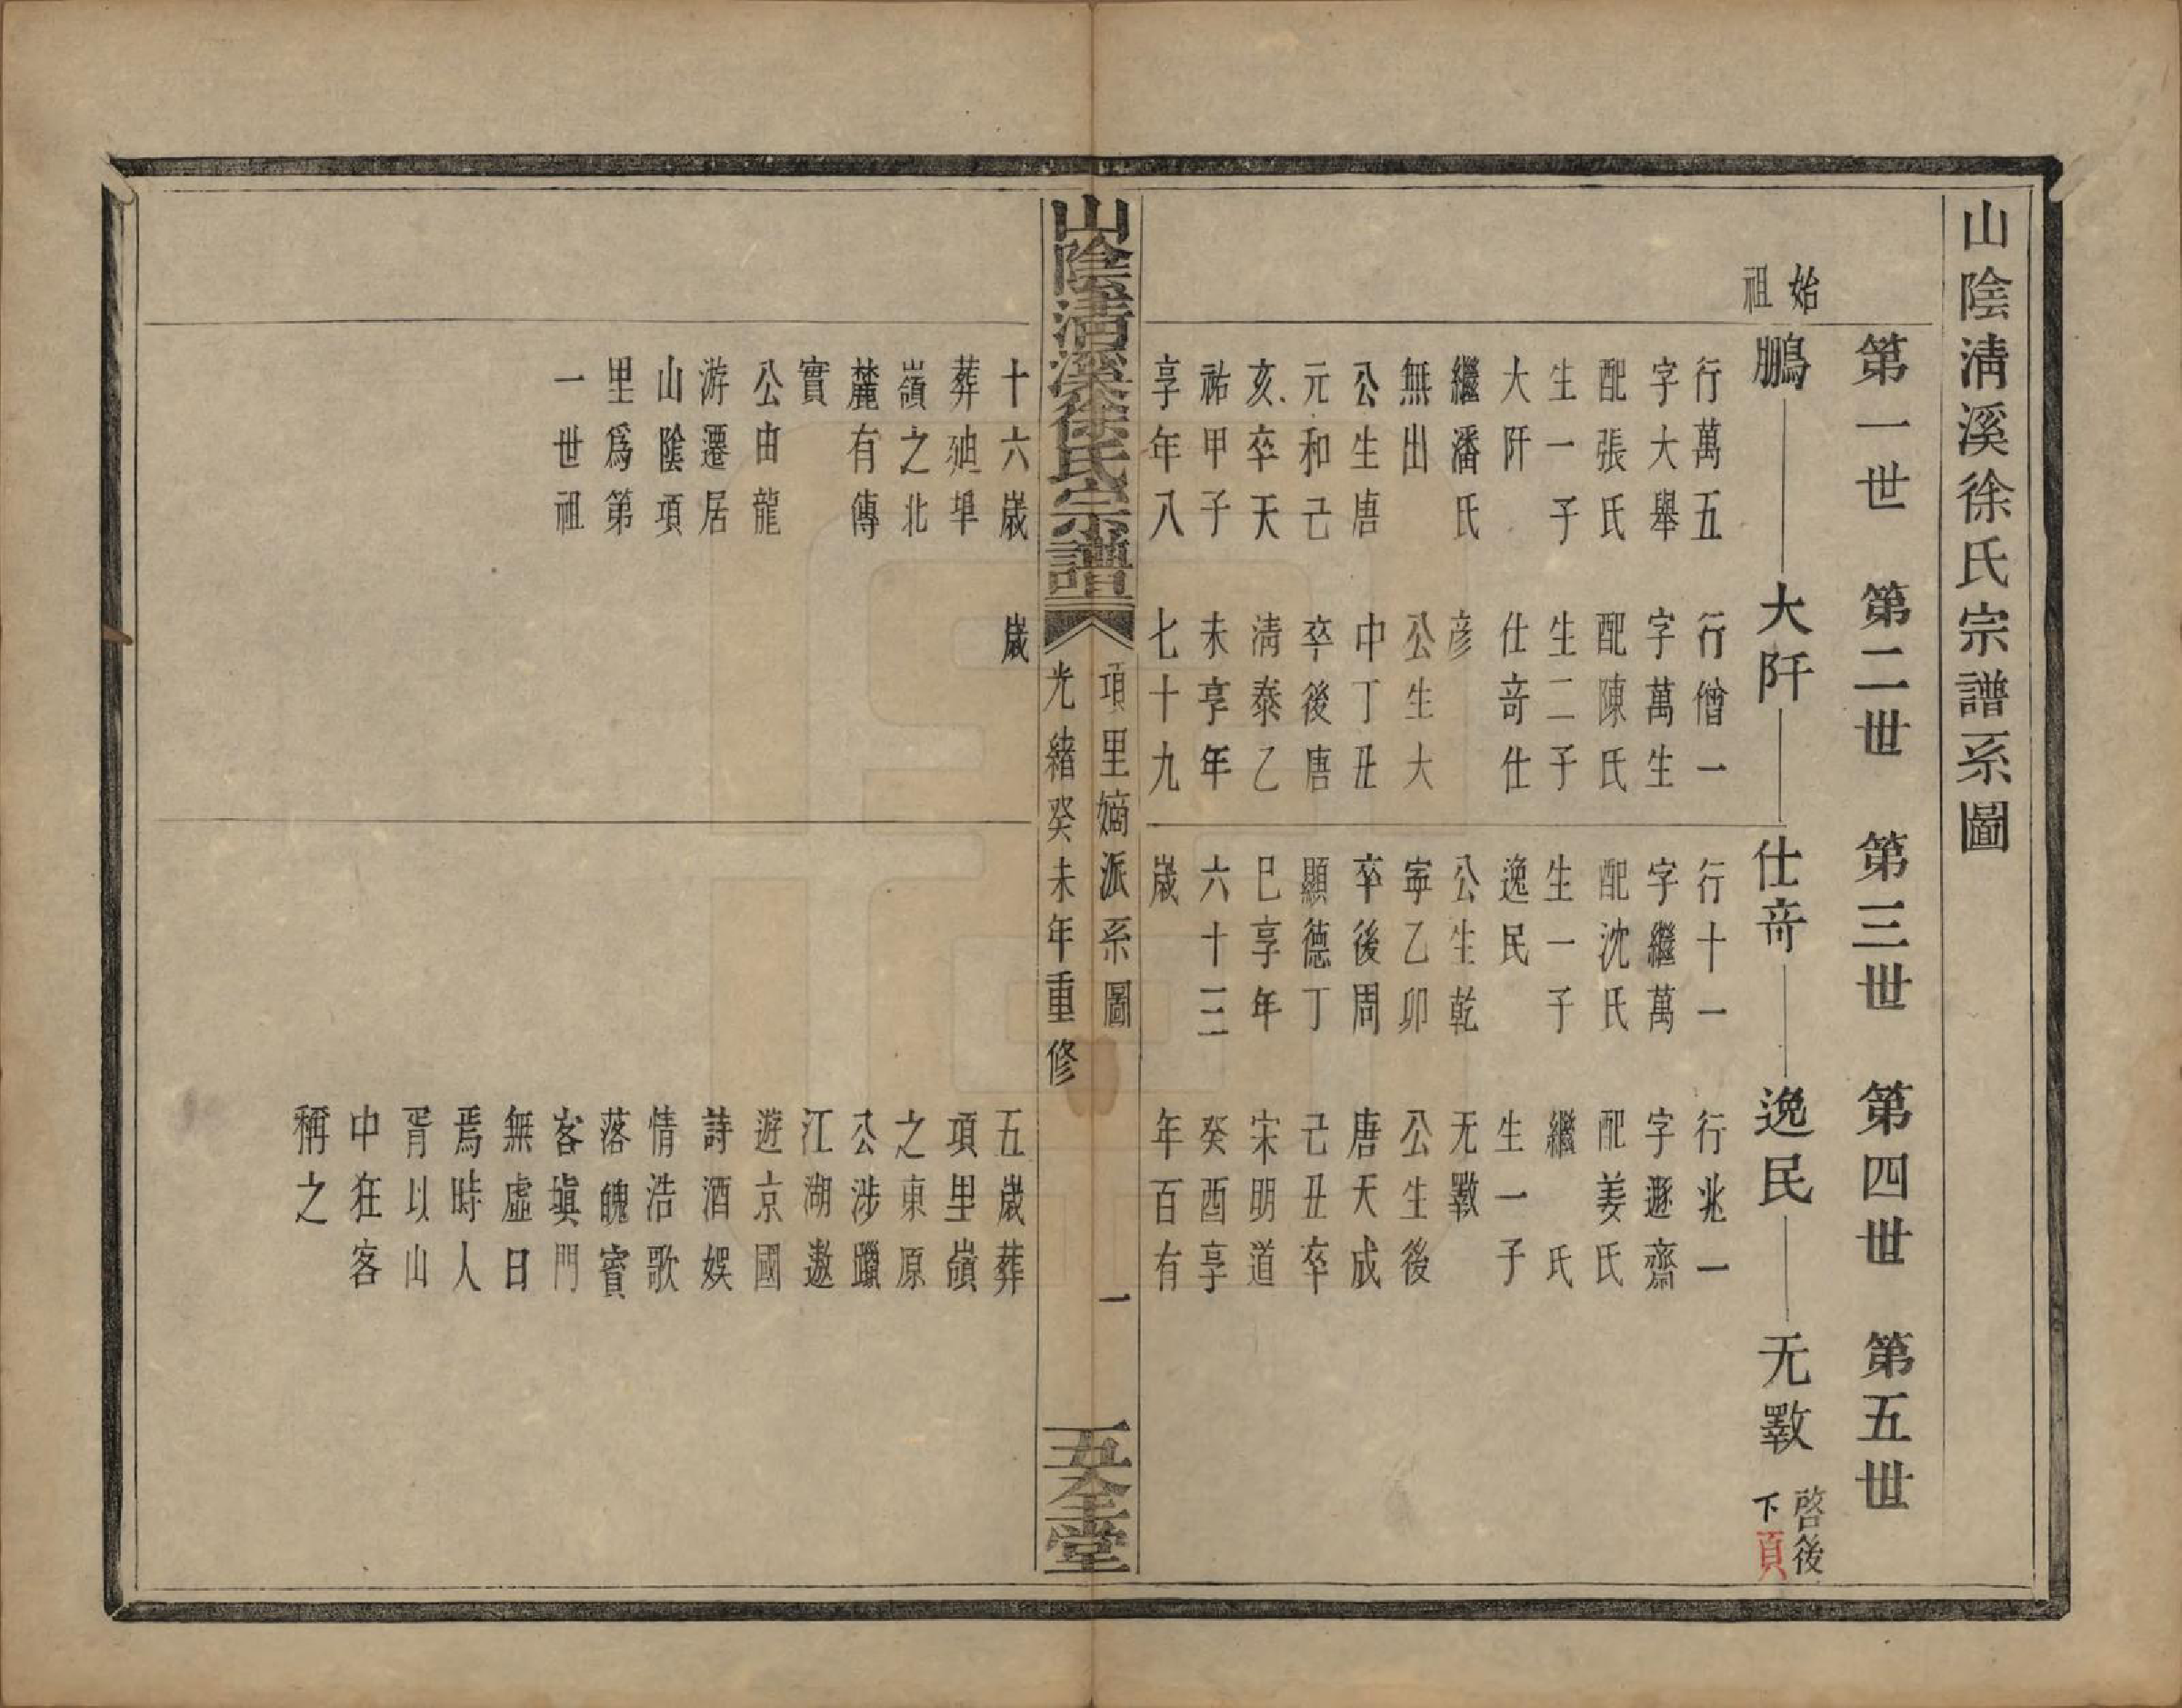 山陰淸溪徐氏宗譜系圖
第一世 第二世 第三世 第四世 第五世
始祖 鵬 大阡 仕竒 逸民 无斁 啓後下頁
行萬五
字大舉
配張氏
生一子
大阡
繼潘氏
無出
公生唐
元和己
亥卒天
祐甲子
享年八
十六歲
葬廸𭏟
嶺之北
麓有傳
實
公由龍
游遷居
山陰項
里爲第
一世祖
行僧一
字萬生
配陳氏
生二子
仕竒仕
彦
公生大
中丁丑
卒後唐
淸泰乙
未享年
七十九
歲
行十一
字繼萬
配沈氏
生一子
逸民
公生乾
寧乙卯
卒後周
顯德丁
巳享年
六十三
歲
行兆一
字遯齋
配姜氏
繼 氏
生一子
无斁
公生後
唐天成
己丑卒
宋明道
癸酉享
年百有
五歲葬
項里嶺
之東原
公涉躐
江湖遨
遊京國
詩酒娛
情浩歌
落魄賓
客塡門
無虛日
焉時人
胥以山
中狂客
稱之
山陰淸溪徐氏宗譜
項里嫡派系圖
光緖癸未年重修
一
五全堂